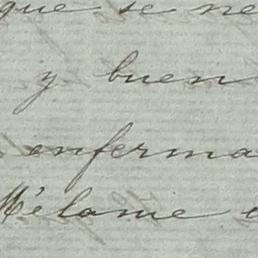 que se ne
y buen
enferma
Mélanie